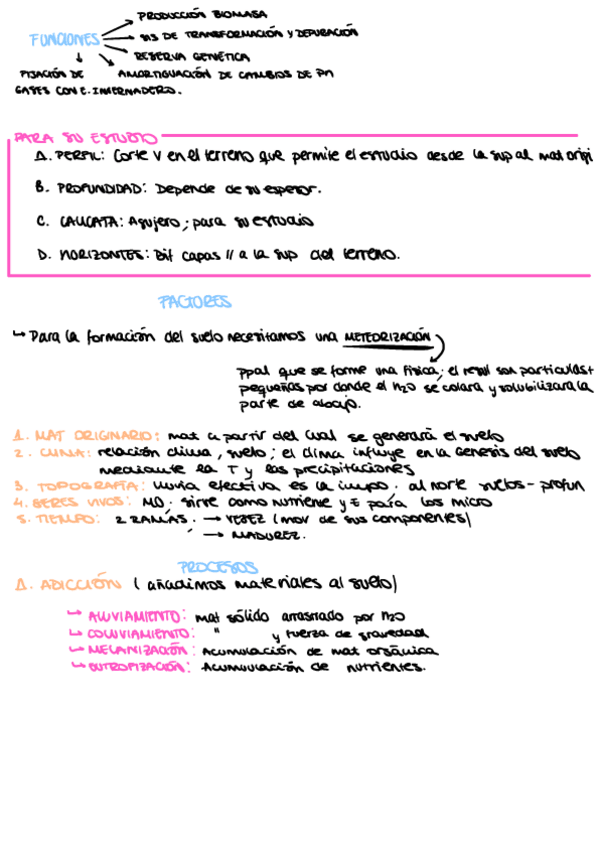 PRODUCCIÓN BIOMASA
FUNCIONES
SIS DE TRANSFORMACIÓN Y DEPURACIÓN
RESERVA GENÉTICA
FIJACIÓN DE
GASES CON E. INVERNADERO.
AMORTIGUACIÓN DE CAMBIOS DE PH
PARA SU ESTUDIO
A. PERFIL: Corte V en el terreno que permite el estudio desde la sup al mat origi
B. PROFUNDIDAD: Depende de su espesor.
C. CALICATA: Agujero; para su estudio
D. HORIZONTES: Dif capas // a la sup del terreno.
FACTORES
↳ Para la formación del suelo necesitamos una METEORIZACIÓN
ppal que se forme una física; el resul son particulas +
pequeñas por donde el H2O se colara y solubilizara la
parte de abajo.
1. MAT ORIGINARIO: mat a partir del cual se generará el suelo
2. CLIMA: relación clima, suelo; el clima influye en la genesis del suelo
mediante la T y las precipitaciones
3. TOPOGRAFÍA: lluvia efectiva es la impo. al norte suelos - profun
4. SERES VIVOS: MO. sirve como nutriente y E para los micro
5. TIEMPO: 2 RAMAS. → VEJEZ (mov de sus componentes)
→ MADUREZ.
PROCESOS
A. ADICCIÓN (añadimos materiales al suelo)
↳ ALUVIAMIENTO: mat sólido arrastrado por H2O
↳ COLUVIAMIENTO: " y fuerza de gravedad
↳ MELANIZACIÓN: Acumulación de mat orgánica
↳ EUTROFIZACIÓN: Acumulación de nutrientes.